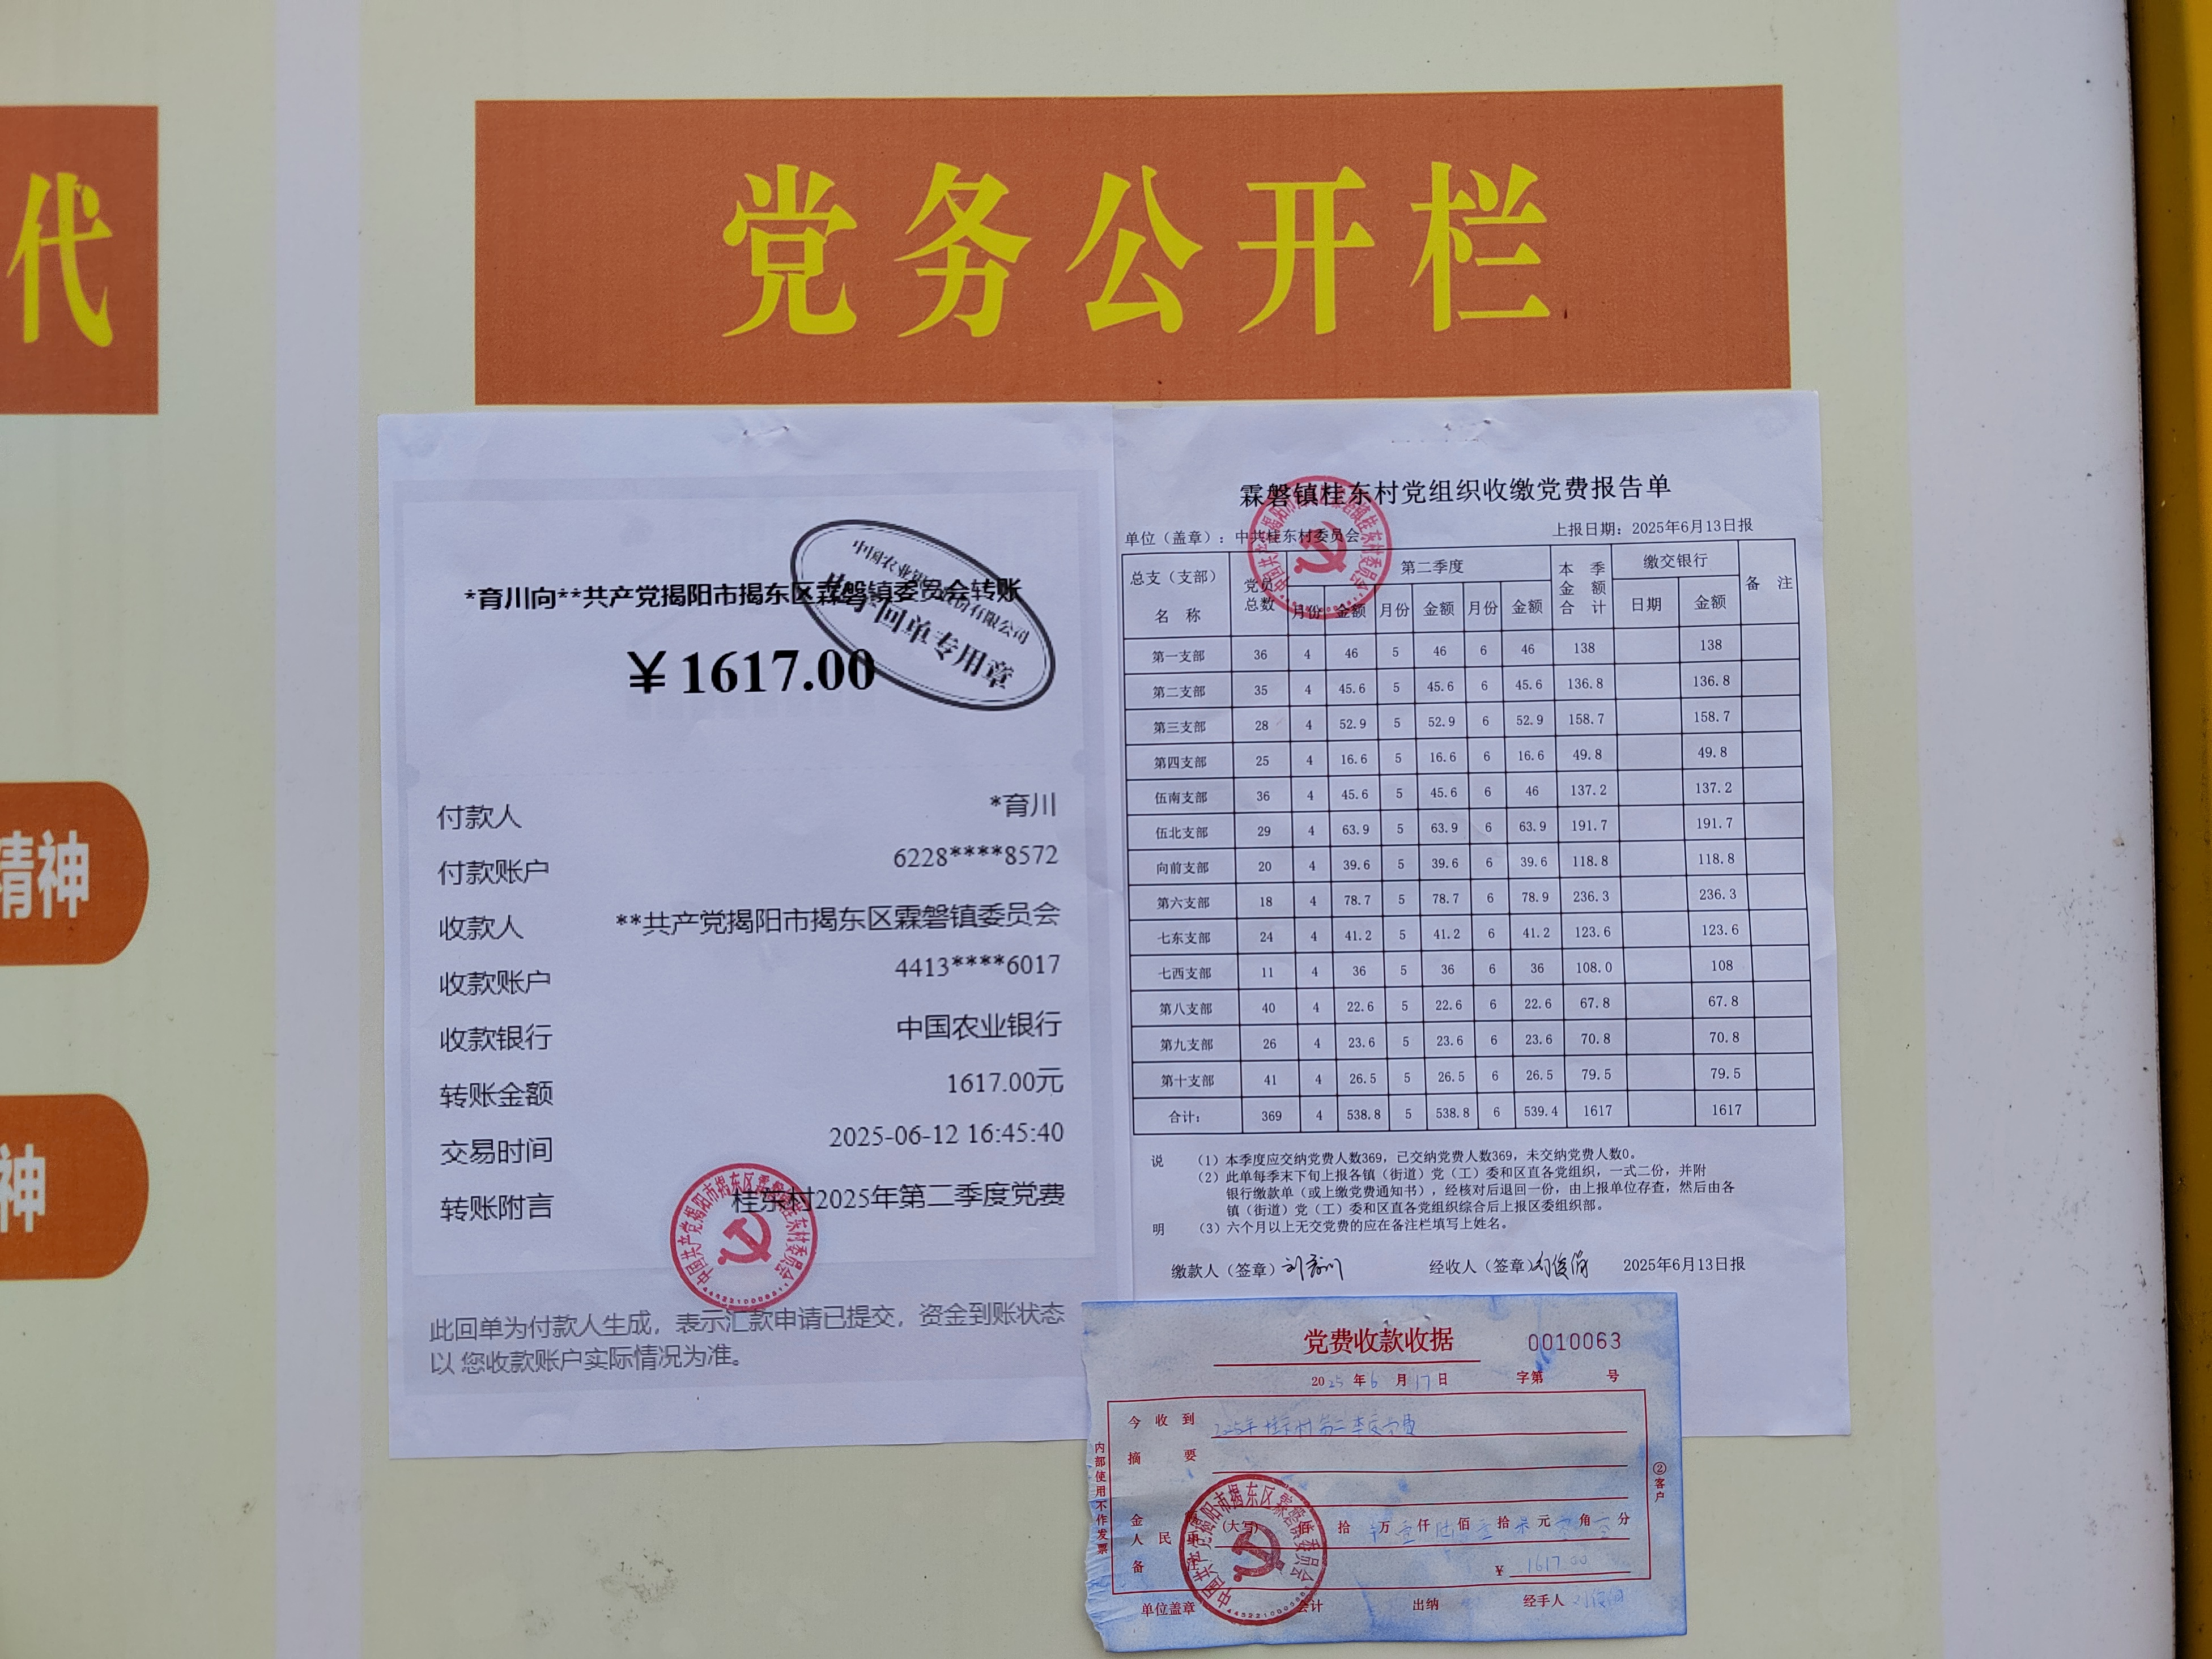 代
精神
神
党务公开栏
*育川向**共产党揭阳市揭东区霖磐镇委员会转账
¥1617.00
付款人 *育川
付款账户 6228****8572
收款人 **共产党揭阳市揭东区霖磐镇委员会
收款账户 4413****6017
收款银行 中国农业银行
转账金额 1617.00元
交易时间 2025-06-12 16:45:40
转账附言 桂东村2025年第二季度党费
此回单为付款人生成，表示汇款申请已提交，资金到账状态
以 您收款账户实际情况为准。
霖磐镇桂东村党组织收缴党费报告单
单位（盖章）：中共桂东村委员会 上报日期：2025年6月13日报
总支（支部）名 称 党员总数 第二季度 本季金额合计 缴交银行 备 注
月份 金额 月份 金额 月份 金额 日期 金额
第一支部 36 4 46 5 46 6 46 138 138
第二支部 35 4 45.6 5 45.6 6 45.6 136.8 136.8
第三支部 28 4 52.9 5 52.9 6 52.9 158.7 158.7
第四支部 25 4 16.6 5 16.6 6 16.6 49.8 49.8
伍南支部 36 4 45.6 5 45.6 6 46 137.2 137.2
伍北支部 29 4 63.9 5 63.9 6 63.9 191.7 191.7
向前支部 20 4 39.6 5 39.6 6 39.6 118.8 118.8
第六支部 18 4 78.7 5 78.7 6 78.9 236.3 236.3
七东支部 24 4 41.2 5 41.2 6 41.2 123.6 123.6
七西支部 11 4 36 5 36 6 36 108.0 108
第八支部 40 4 22.6 5 22.6 6 22.6 67.8 67.8
第九支部 26 4 23.6 5 23.6 6 23.6 70.8 70.8
第十支部 41 4 26.5 5 26.5 6 26.5 79.5 79.5
合计： 369 4 538.8 5 538.8 6 539.4 1617 1617
说 （1）本季度应交纳党费人数369，已交纳党费人数369，未交纳党费人数0。
（2）此单每季末下旬上报各镇（街道）党（工）委和区直各党组织，一式二份，并附
银行缴款单（或上缴党费通知书），经核对后退回一份，由上报单位存查，然后由各
镇（街道）党（工）委和区直各党组织综合后上报区委组织部。
明 （3）六个月以上无交党费的应在备注栏填写上姓名。
缴款人（签章） 经收人（签章） 2025年6月13日报
党费收款收据 0010063
2025年6月17日 字第 号
今收到 2025年桂东村第二季度党费
摘 要
金 额 (大写) 佰 拾 万壹仟陆佰壹拾柒元零角零分
人民
备 ¥ 1617.00
单位盖章 会计 出纳 经手人
内部使用不作发票
②客户